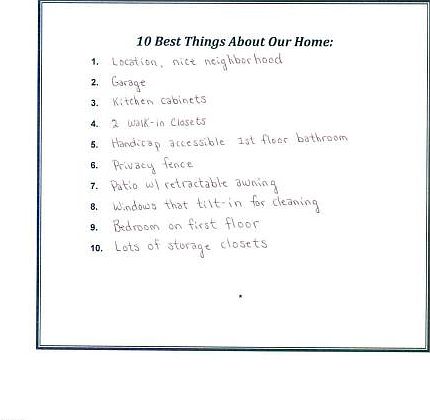 10 Best Things About Our Home:
1. Location, nice neighborhood
2. Garage
3. Kitchen cabinets
4. 2 walk-in closets
5. Handicap accessible 1st floor bathroom
6. Privacy fence
7. Patio w/ retractable awning
8. Windows that tilt-in for cleaning
9. Bedroom on first floor
10. Lots of storage closets